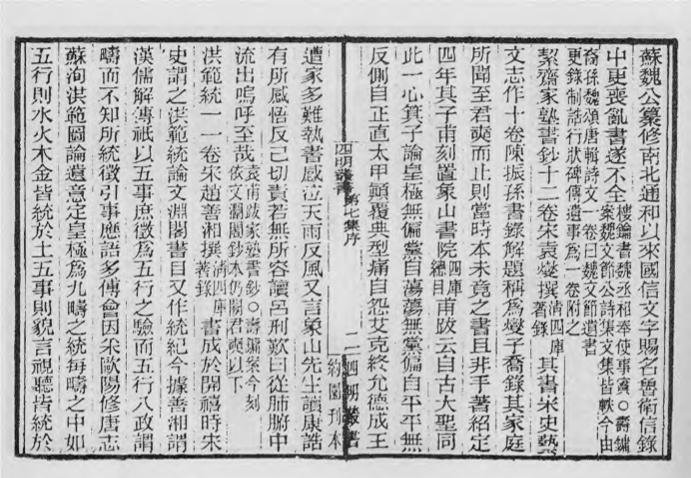 蘇魏公纂修南北通和以來國信文字賜名魯衛信錄
中更喪亂書遂不全樓鑰書魏丞相奉使事實○壽鏞
案魏文節公詩集文集皆軼今由
裔孫魏頌唐輯詩文一卷曰魏文節遺書
更錄制誥行狀碑傳遺事爲一卷附之
絜齋家塾書鈔十二卷宋袁燮撰清四庫
著錄其書宋史藝
文志作十卷陳振孫書錄解題稱爲燮子喬錄其家庭
所聞至君奭而止則當時本未竟之書且非手著紹定
四年其子甫刻置象山書院四庫
總目甫跋云自古大聖同
此一心箕子論皇極無偏黨自蕩蕩無黨偏自平平無
反側自正直太甲顛覆典型痛自怨艾克終允德成王
四明叢書 第七集序
二 四明叢書
約園刊本
遭家多難執書感泣天雨反風又言象山先生讀康誥
有所感悟反己切責若無所容讀呂刑歎曰從肺腑中
流出嗚呼至哉袁甫跋家塾書鈔○壽鏞案今刻
依文瀾閣鈔本仍闕君奭以下
洪範統一一卷宋趙善湘撰清四庫
著錄書成於開禧時宋
史謂之洪範統論文淵閣書目又作統紀今據善湘謂
漢儒解傳祇以五事庶徵爲五行之驗而五行八政謂
疇而不知所統徵引事應語多傅會因采歐陽修唐志
蘇洵洪範圖論遺意定皇極爲九疇之統每疇之中如
五行則水火木金皆統於土五事則貌言視聽皆統於